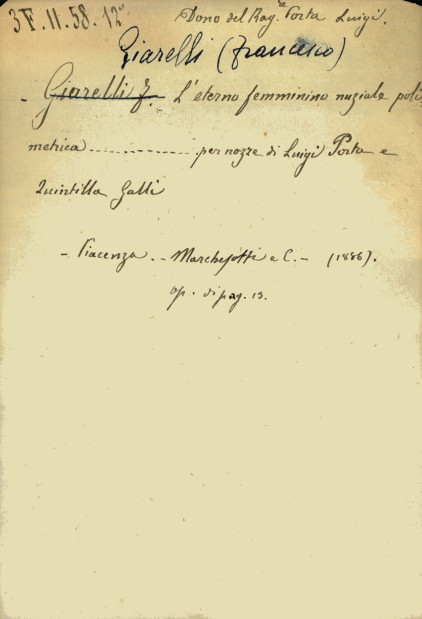 3F.II.58.12° Dono del Rag.re Porta Luigi.
Giarelli (Francesco)
- Giarelli F. L'eterno femminino nuziale poli
metrica .............. per nozze di Luigi Porta e
Quintilla Galli
- Piacenza. - Marchesotti e C. - (1886).
op. di pag. 13.